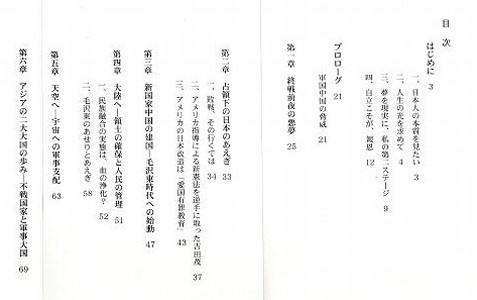 目次
はじめに 3
一、日本人の本質を見たい 3
二、人生の光を求めて 4
三、夢を現実に、私の第二ステージ 9
四、自立こそが、報恩 12
プロローグ 21
軍国中国の脅威 21
第一章 終戦前夜の悪夢 25
第二章 占領下の日本のあえぎ 33
一、敗戦、その行くては 34
二、アメリカ指導による新憲法を逆手に取った吉田茂 37
三、アメリカの日本改造は「愛国有罪教育」 43
第三章 新国家中国の建国―毛沢東時代への始動 47
第四章 大陸へ―領土の確保と人民の管理 51
一、民族融合の実態は、血の浄化? 52
二、毛沢東のあせりとあえぎ 58
第五章 天空へ―宇宙への軍事支配 63
第六章 アジアの二大大国の歩み―不戦国家と軍事大国 69